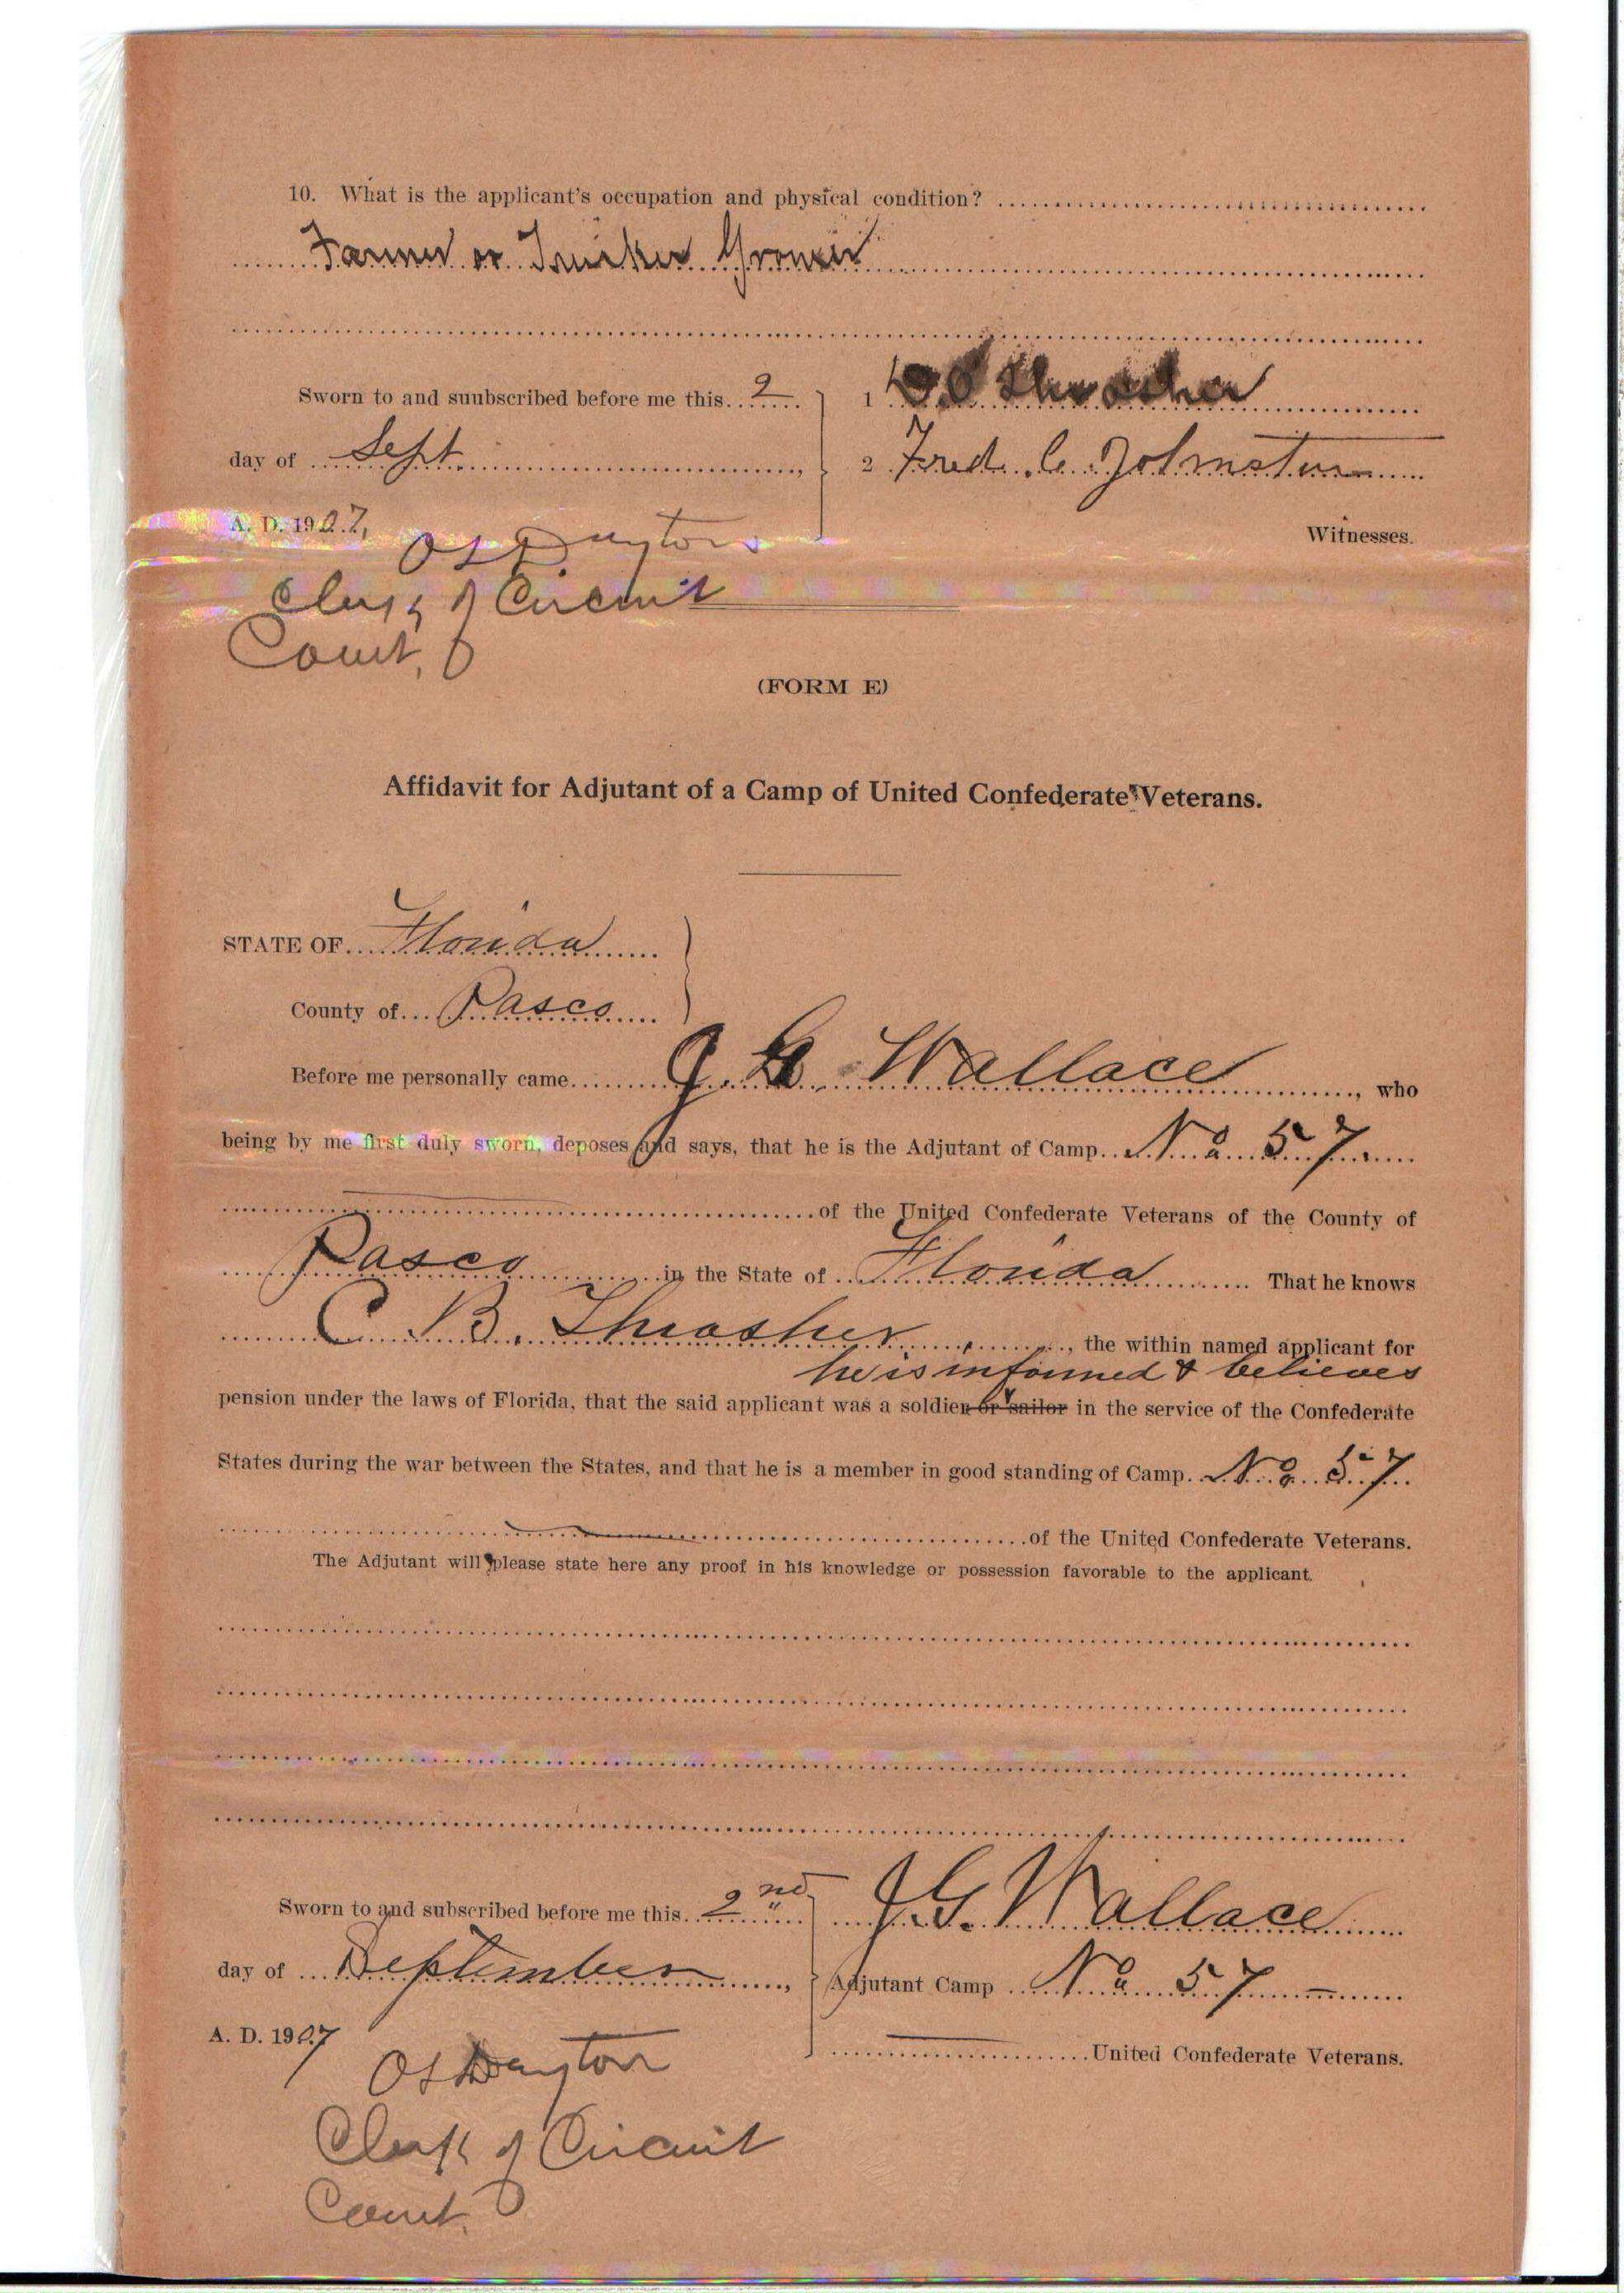 10. What is the applicant's occupation and physical condition?
Farmer or Trucker Grower
Sworn to and suubscribed before me this 2
1 Thrasher
day of Sept.,
2 Fred. C. Johnston
A. D. 1907,
Witnesses.
O L Dayton
Clerk of Circuit
Court,
(FORM E)
Affidavit for Adjutant of a Camp of United Confederate Veterans.
STATE OF Florida
County of Pasco
Before me personally came J. G. Wallace, who
being by me first duly sworn, deposes and says, that he is the Adjutant of Camp No 57
of the United Confederate Veterans of the County of
Pasco in the State of Florida. That he knows
C B. Thrasher, the within named applicant for
he is informed & believes
pension under the laws of Florida, that the said applicant was a soldier or sailor in the service of the Confederate
States during the war between the States, and that he is a member in good standing of Camp No 57
of the United Confederate Veterans.
The Adjutant will please state here any proof in his knowledge or possession favorable to the applicant.
Sworn to and subscribed before me this 2nd
J. G. Wallace
day of September,
Adjutant Camp No 57
A. D. 1907
United Confederate Veterans.
O L Dayton
Clerk of Circuit
Court.